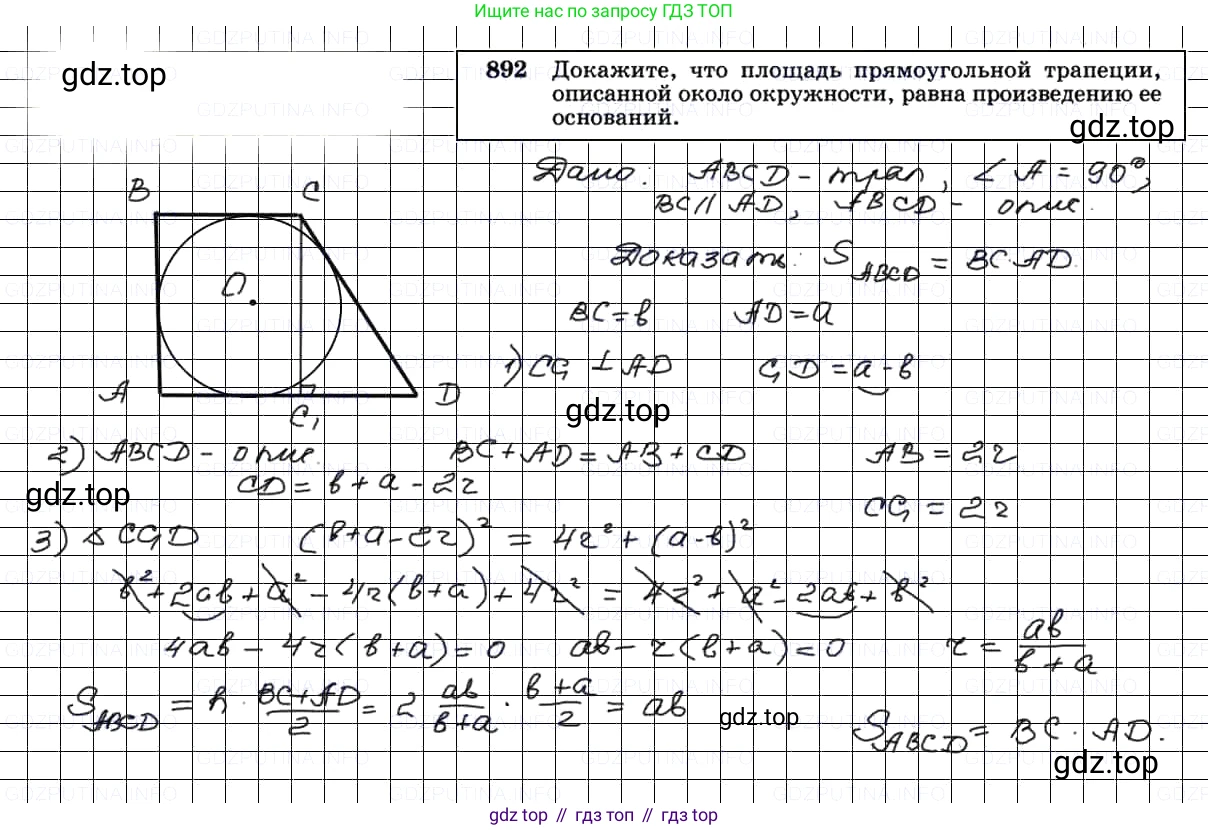 Ищите нас по запросу ГДЗ ТОП
gdz.top
892 Докажите, что площадь прямоугольной трапеции,
описанной около окружности, равна произведению ее
оснований.
gdz.top
Дано: ABCD - трап, ∠ A = 90°,
BC ∥ AD, ABCD - опис.
Доказать: S_ABCD = BC·AD.
BC = b AD = a
B C
O
A C₁ D
1) CC₁ ⊥ AD C₁D = a - b
gdz.top
2) ABCD - опис. BC + AD = AB + CD AB = 2r
CD = b + a - 2r
gdz.top
CC₁ = 2r
3) △ CC₁D (b+a-2r)² = 4r² + (a-b)²
b² + 2ab + a² - 4r(b+a) + 4r² = 4r² + a² - 2ab + b²
4ab - 4r(b+a) = 0 ab - r(b+a) = 0 r = ab/(b+a)
S_ABCD = h · (BC+AD)/2 = 2 ab/(b+a) · (b+a)/2 = ab
gdz.top
S_ABCD = BC · AD.
gdz.top
gdz top // гдз топ // гдз top